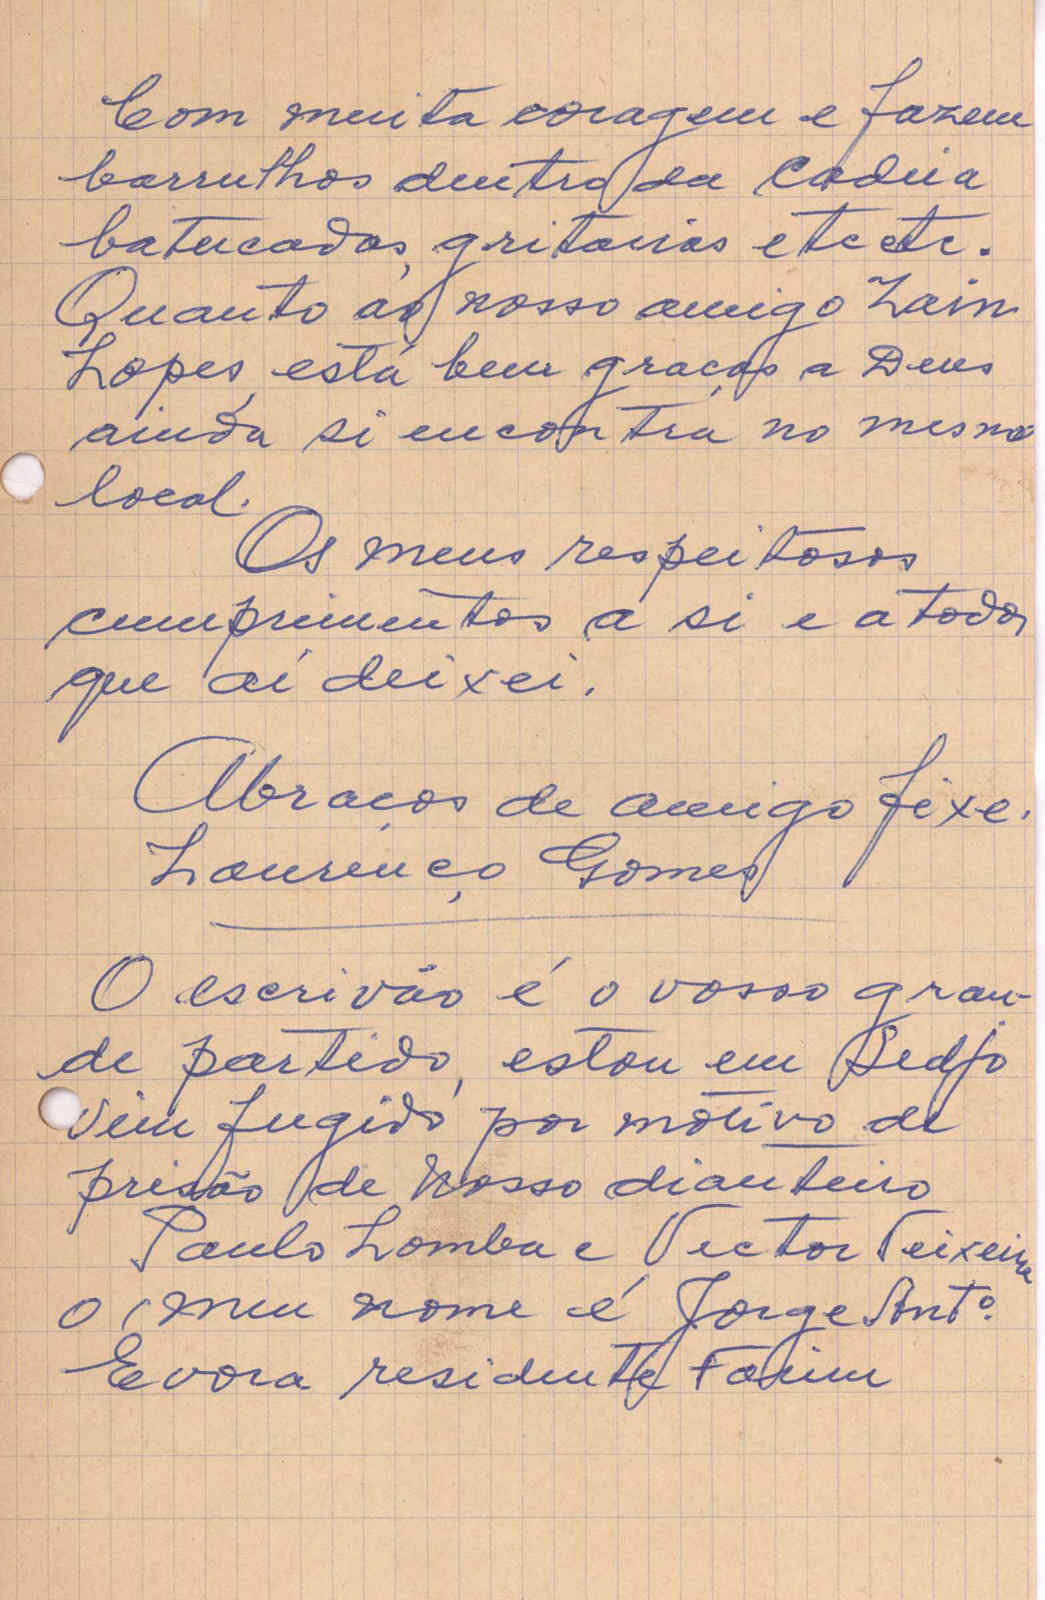 Com muita coragem e fazem
barrulhos dentro da Cadeia
batucadas, gritarias etc etc.
Quanto ao nosso amigo Zain
Lopes, está bem graças a Deus
ainda si encontra no mesmo
local.
Os meus respeitosos
cumprimentos a si e a todos
que aí deixei.
Abraços de amigo fixe.
Lourenço Gomes
O escrivão é o vosso gran-
de partido, estou em
vim fugido por motivo de
prisão de Nosso dianteiro
Paulo Lomba e Victor Teixeira
o meu nome é Jorge Antº.
Evora residente Farim